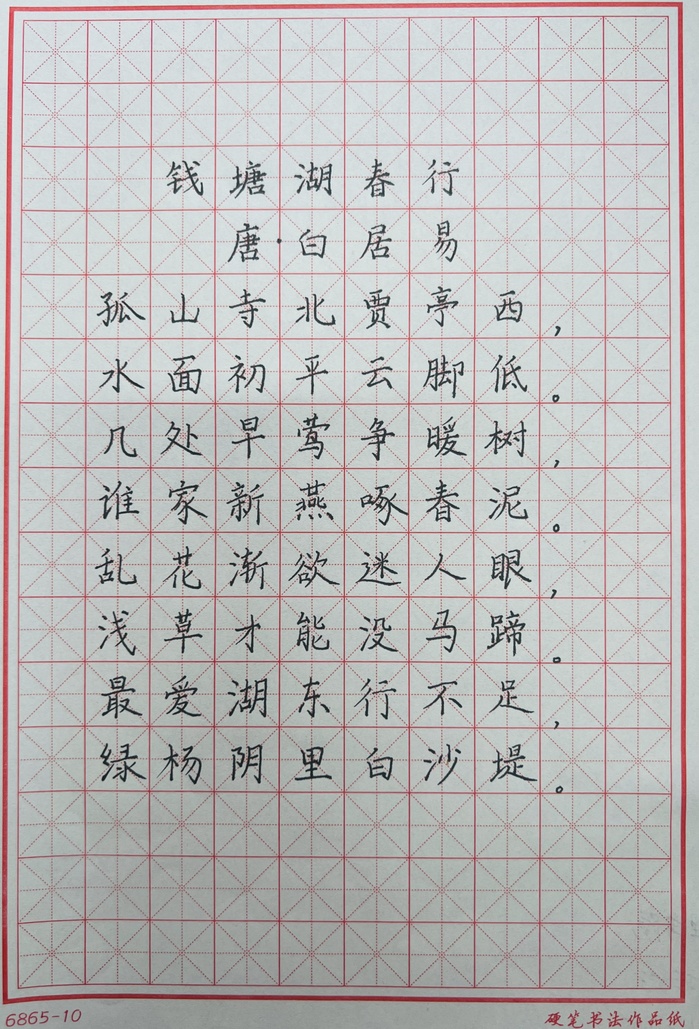 钱塘湖春行
唐·白居易
孤山寺北贾亭西，
水面初平云脚低。
几处早莺争暖树，
谁家新燕啄春泥。
乱花渐欲迷人眼，
浅草才能没马蹄。
最爱湖东行不足，
绿杨阴里白沙堤。
6865-10
硬笔书法作品纸